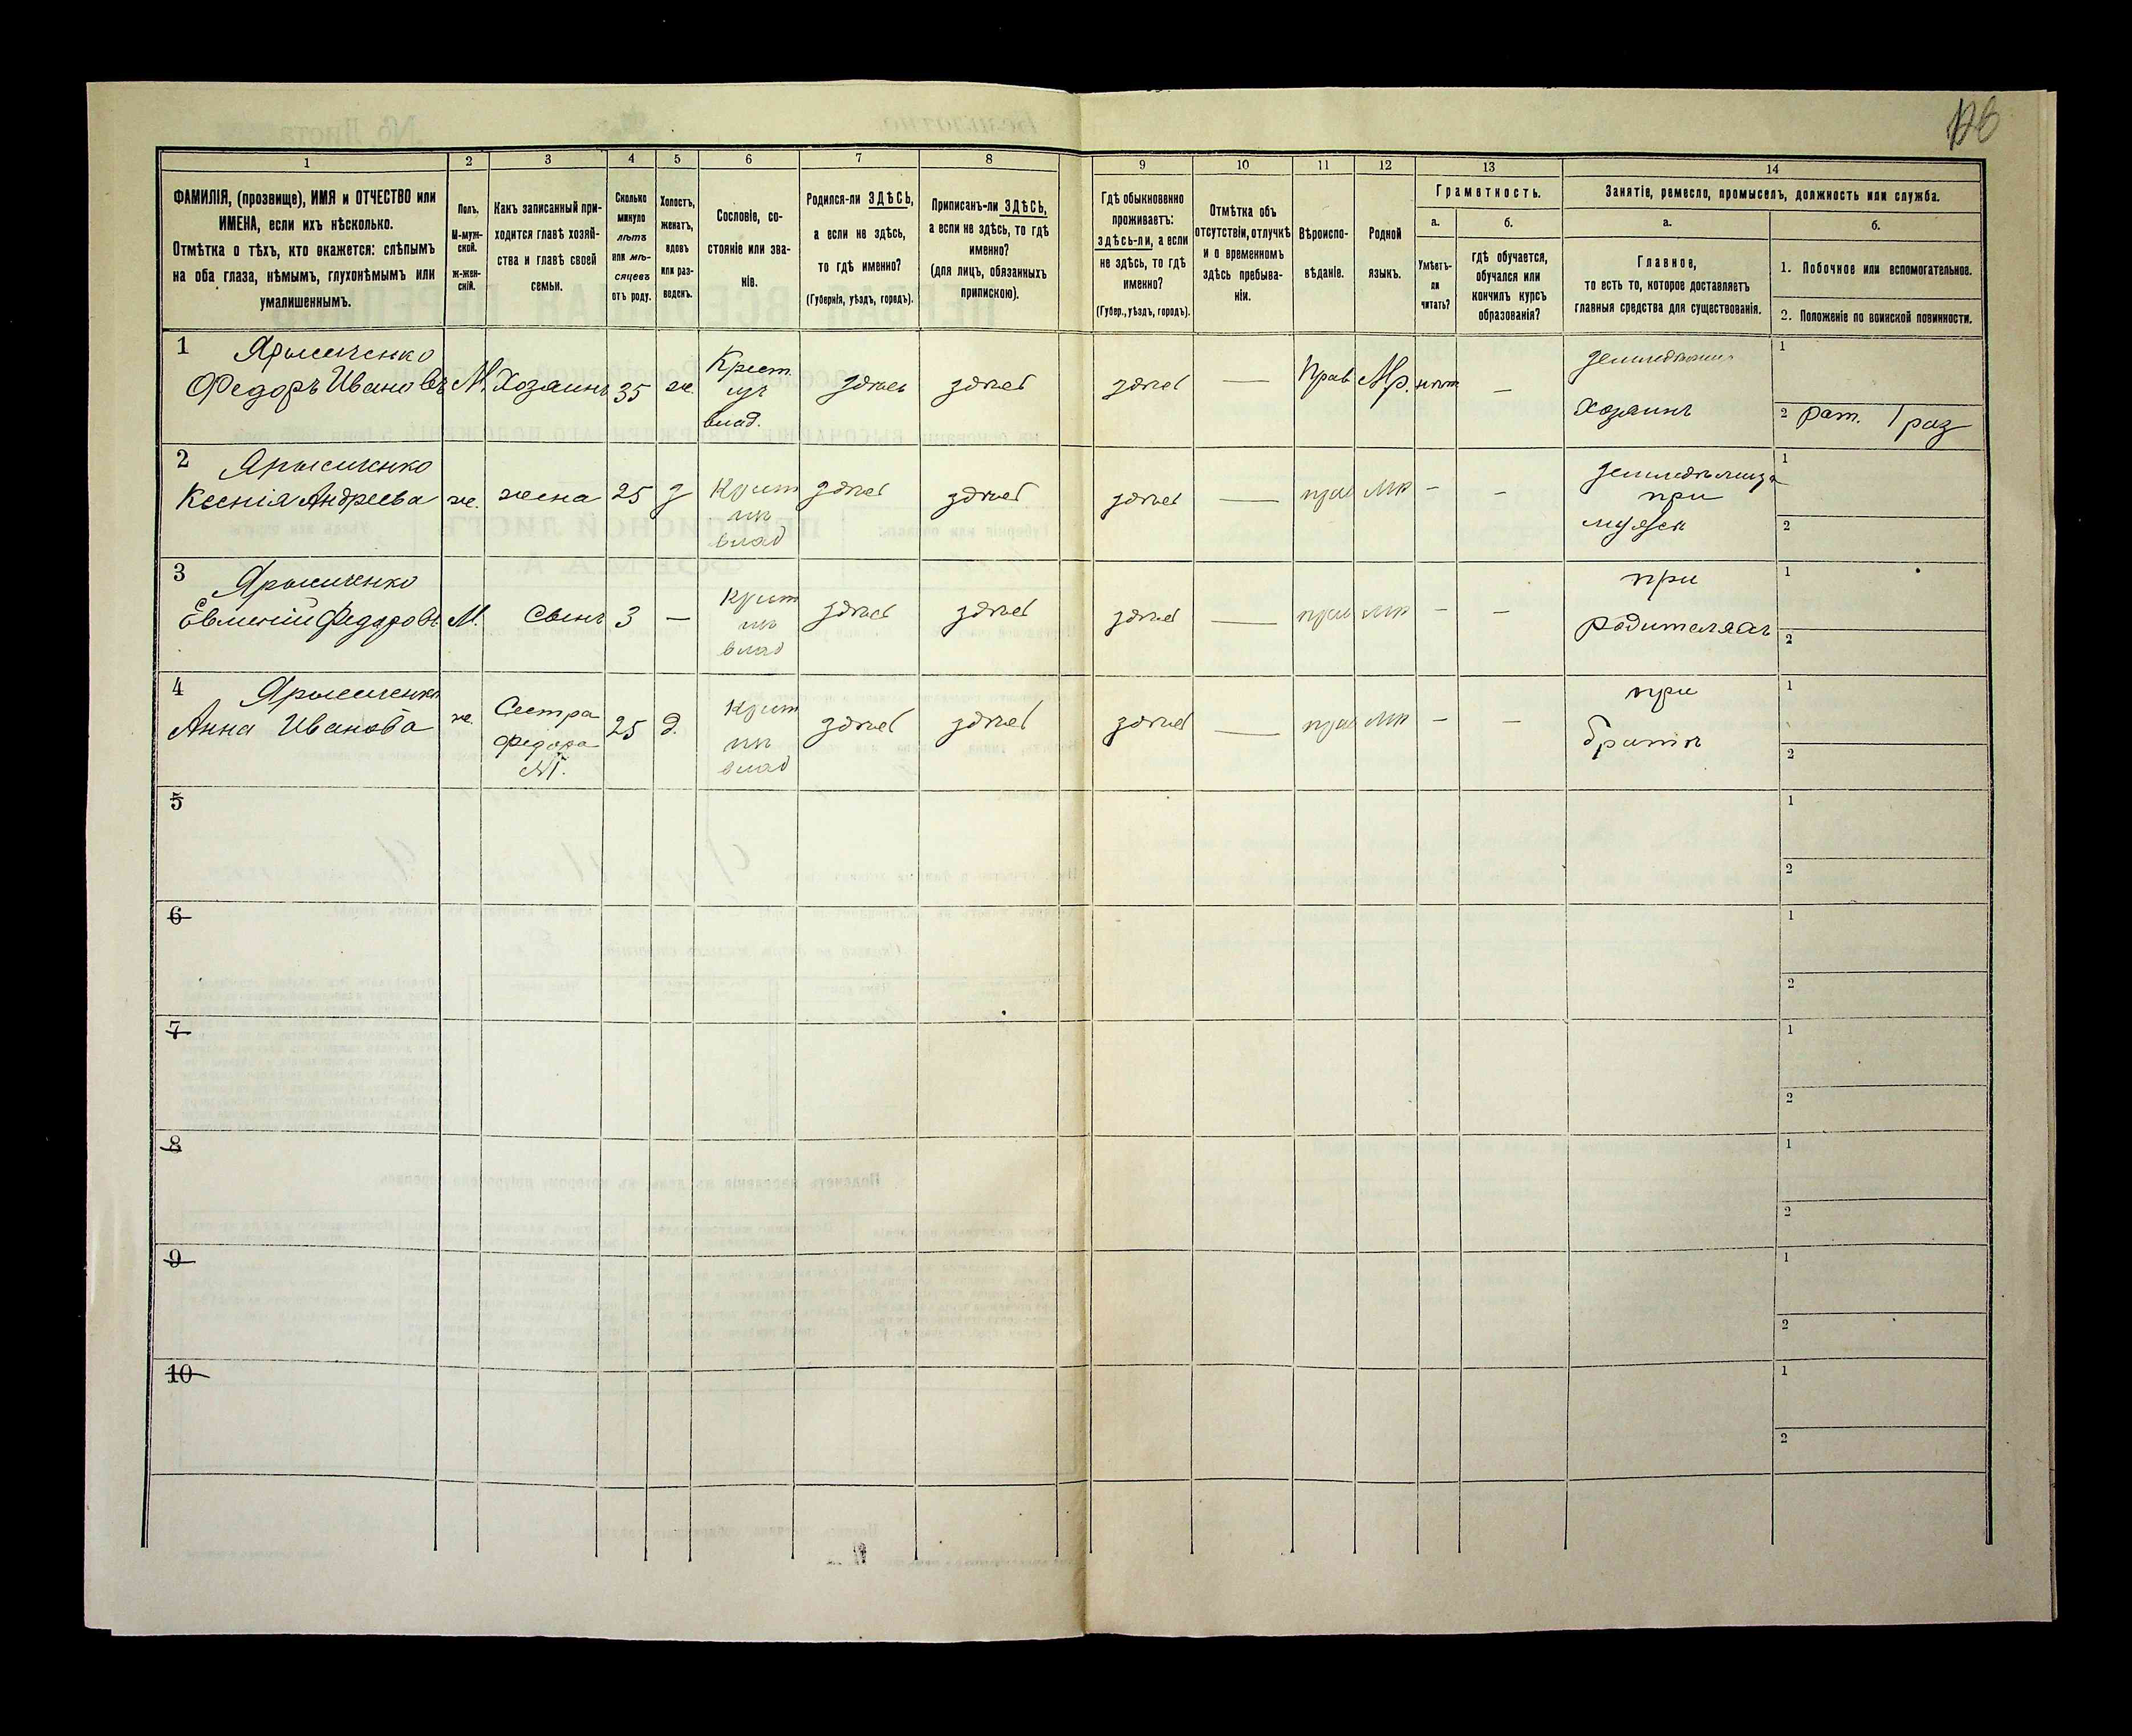 126
1 2 3 4 5 6 7 8 9 10 11 12 13 14
ФАМИЛІЯ, (прозвище), ИМЯ и ОТЧЕСТВО или
ИМЕНА, если ихъ нѣсколько.
Отмѣтка о тѣхъ, кто окажется: слѣпымъ
на оба глаза, нѣмымъ, глухонѣмымъ или
умалишеннымъ.
Полъ.
М-муж-
ской.
ж-жен-
скій.
Какъ записанный при-
ходится главѣ хозяй-
ства и главѣ своей
семьи.
Сколько
минуло
лѣтъ
или мѣ-
сяцевъ
отъ роду.
Холостъ,
женатъ,
вдовъ
или раз-
веденъ.
Сословіе, со-
стояніе или зва-
ніе.
Родился-ли ЗДѢСЬ,
а если не здѣсь,
то гдѣ именно?
(Губернія, уѣздъ, городъ).
Приписанъ-ли ЗДѢСЬ,
а если не здѣсь, то гдѣ
именно?
(для лицъ, обязанныхъ
припискою).
Гдѣ обыкновенно
проживаетъ:
здѣсь-ли, а если
не здѣсь, то гдѣ
именно?
(Губер., уѣздъ, городъ).
Отмѣтка объ
отсутствіи, отлучкѣ
и о временномъ
здѣсь пребыва-
ніи.
Вѣроиспо-
вѣданіе.
Родной
языкъ.
Грамотность.
а.
Умѣетъ-
ли
читать?
б.
гдѣ обучается,
обучался или
кончилъ курсъ
образованія?
Занятіе, ремесло, промыселъ, должность или служба.
а.
Главное,
то есть то, которое доставляетъ
главныя средства для существованія.
б.
1. Побочное или вспомогательное.
2. Положеніе по воинской повинности.
1
Федоръ Ивановъ М. Хозяинъ 35 ж. здѣсь здѣсь здѣсь — Прав Мр. нѣтъ —
Крест
влад.
Хозяинъ
1
2 рат. 1 раз
2
Ксенія Андреева ж. жена 25 з здѣсь здѣсь здѣсь — прав мр — —
Крест
влад
при
мужѣ
1
2
3
Федоровъ М. Сынъ 3 — здѣсь здѣсь здѣсь — прав мр — —
Крест
влад
при
родителяхъ
1
2
4
Анна Иванова ж. Сестра 25 д. здѣсь здѣсь здѣсь — прав мр — —
Федора
№1.
Крест
влад
при
братѣ
1
2
5
1
2
6
1
2
7
1
2
8
1
2
9
1
2
10
1
2